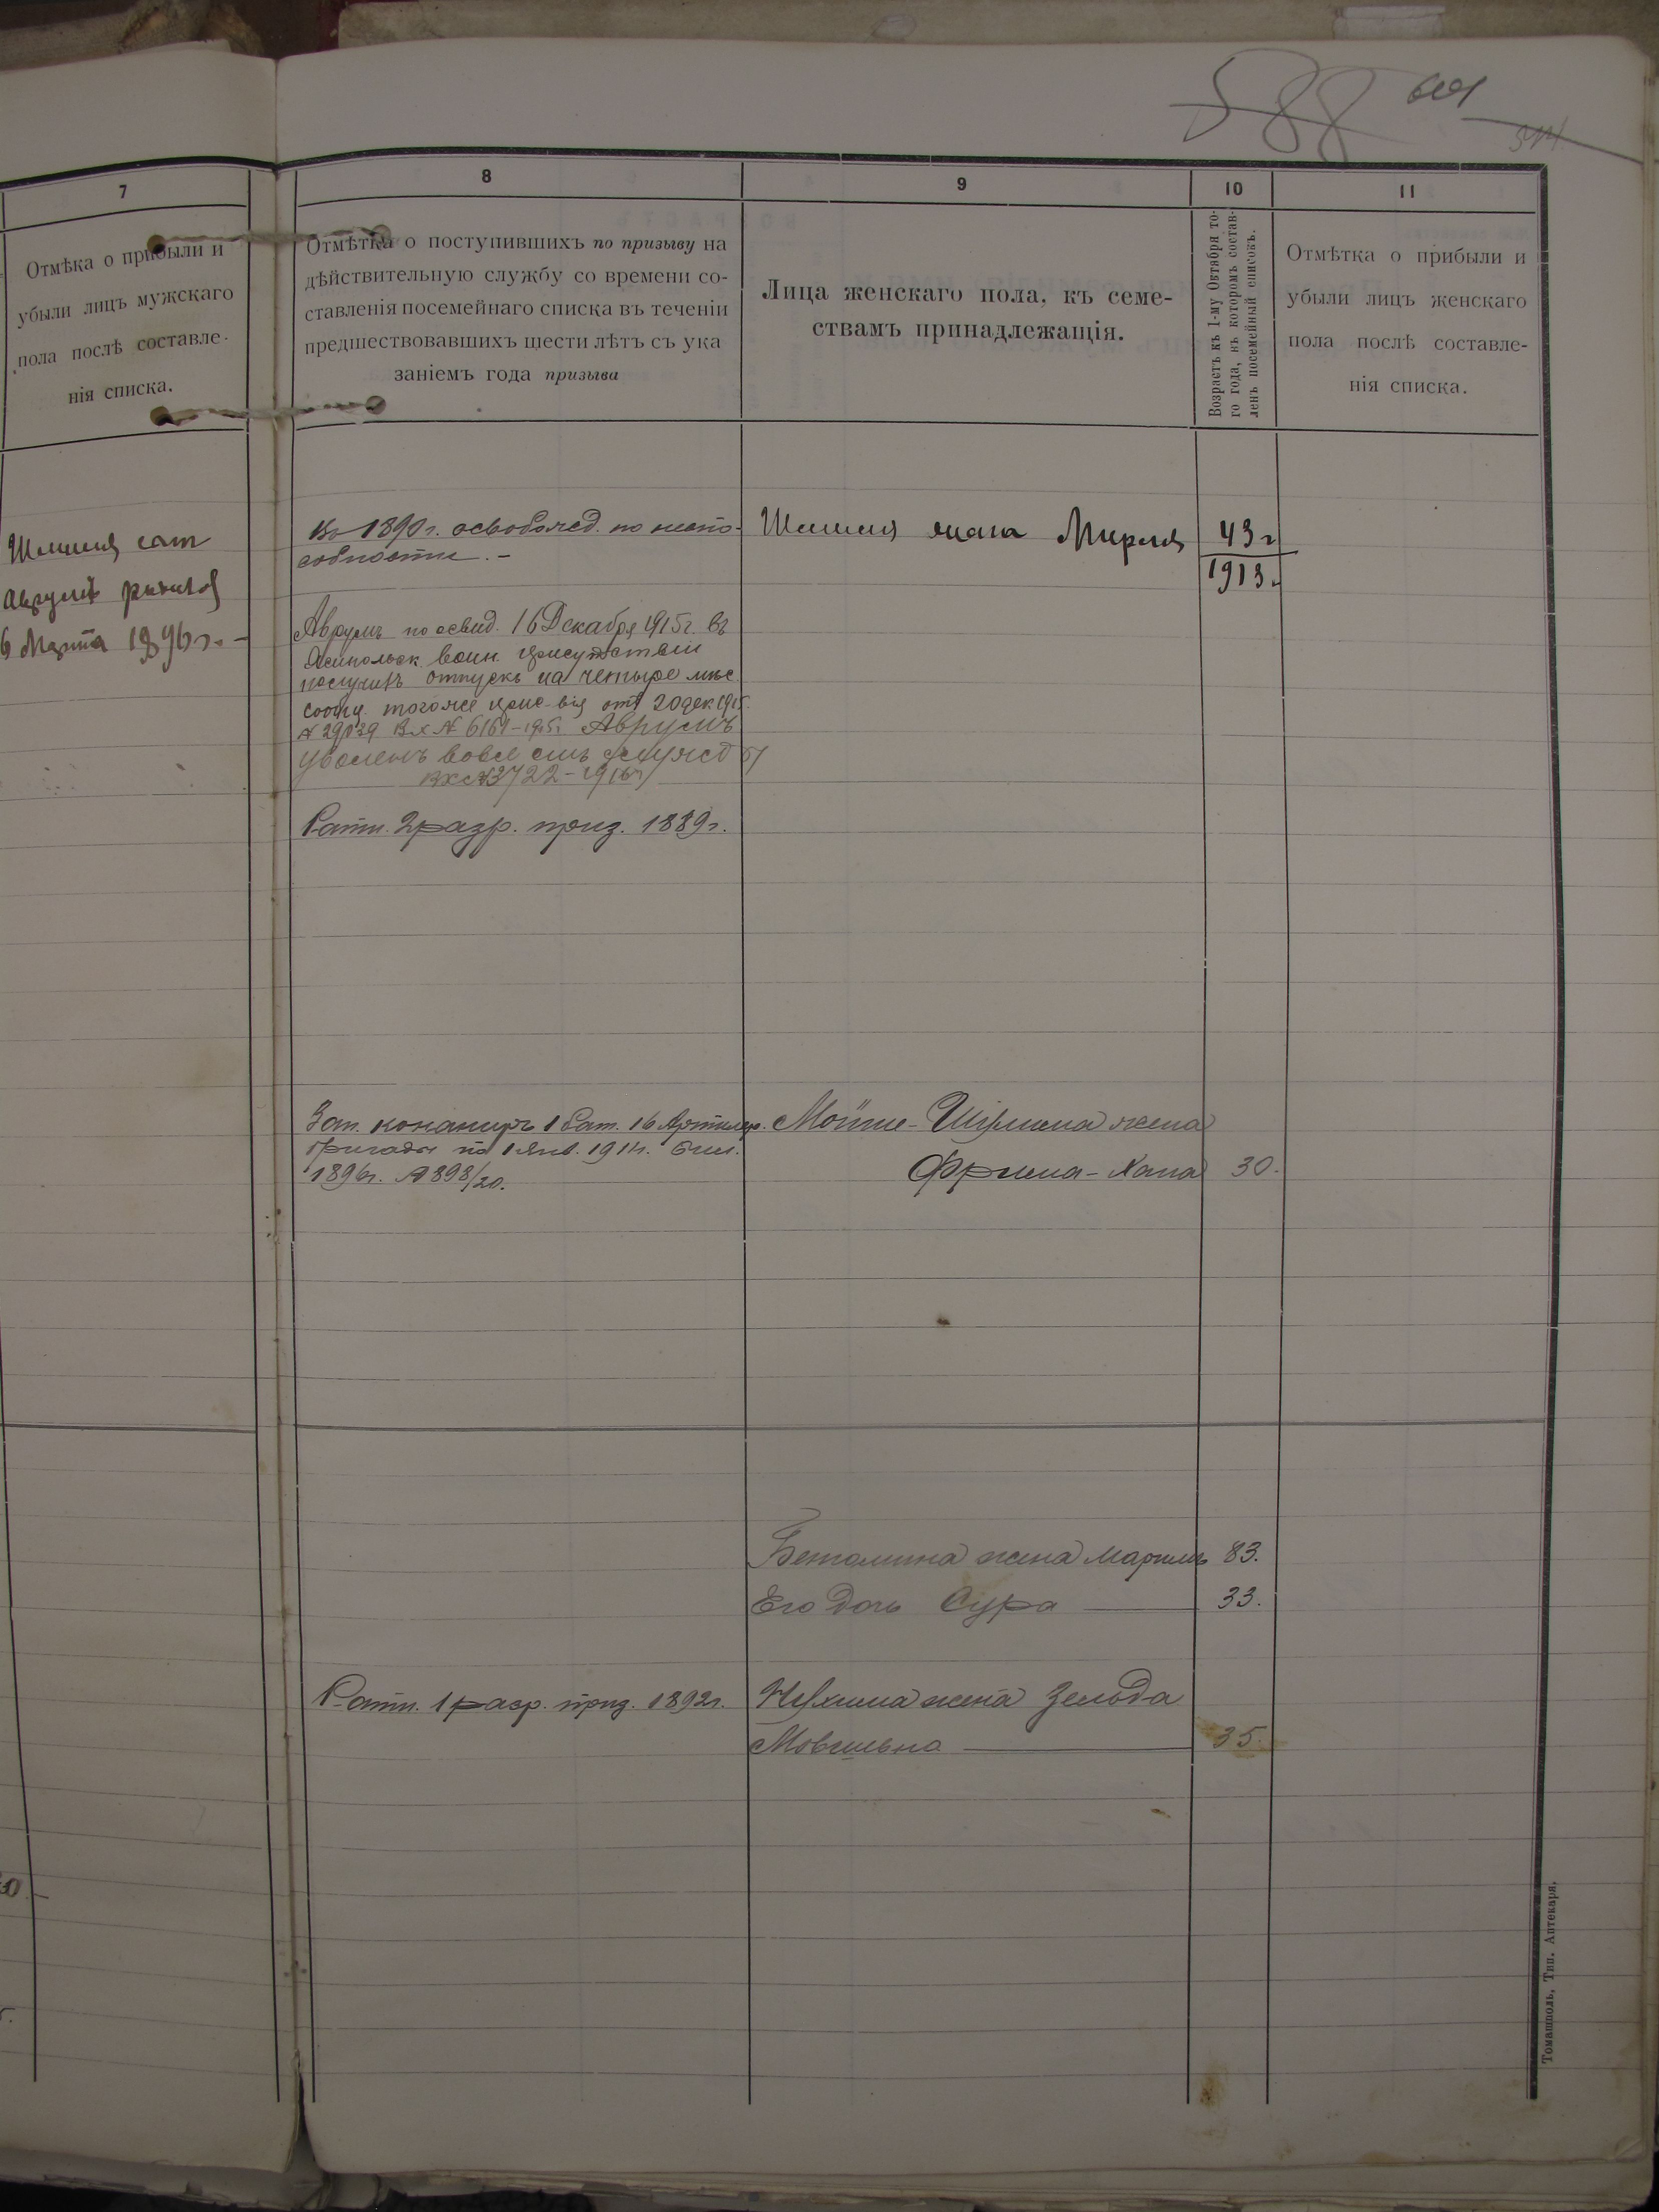 588
7
Отмѣка о прибыли и
убыли лицъ мужскаго
пола послѣ составле-
нія списка.
8
Отмѣтка о поступившихъ по призыву на
дѣйствительную службу со времени со-
ставленія посемейнаго списка въ теченіи
предшествовавшихъ шести лѣтъ съ ука
заніемъ года призыва
9
Лица женскаго пола, къ семе-
ствамъ принадлежащія.
10
Возрастъ къ 1-му Октября то-
го года, въ которомъ состав-
ленъ посемейный списокъ.
11
Отмѣтка о прибыли и
убыли лицъ женскаго
пола послѣ составле-
нія списка.
Аврумъ
6 Марта 1896 г.
Въ 1890 г. освобожд. по неспо-
собности. -
жена Мирля 43 г
1913 г
Аврумъ по освид. 16 Декабря 1915 г. въ
воин. присутствіи
получилъ отпускъ на четыре мѣс.
сообщ. того же прис-вія отъ 20 дек 1915
№ 29039 Вх № 6169 - 1915 г. Аврумъ
уволенъ вовсе отъ службы
Вх № 3722 - 1916 г
Ратн. 2 разр. приз. 1889 г.
Зап. канониръ 1 бат. 16 Артилер.
бригады по 1 янв. 1914 г. бил.
1896 г. № 898/20.
Мойше-Шулима жена
Фрима-Хана 30.
жена 83.
Его дочь Сура 33.
Ратн. 1 разр. приз. 1892 г.
Нухима жена Зельда
Мовшевна 35.
Томашполь, Тип. Аптекаря.